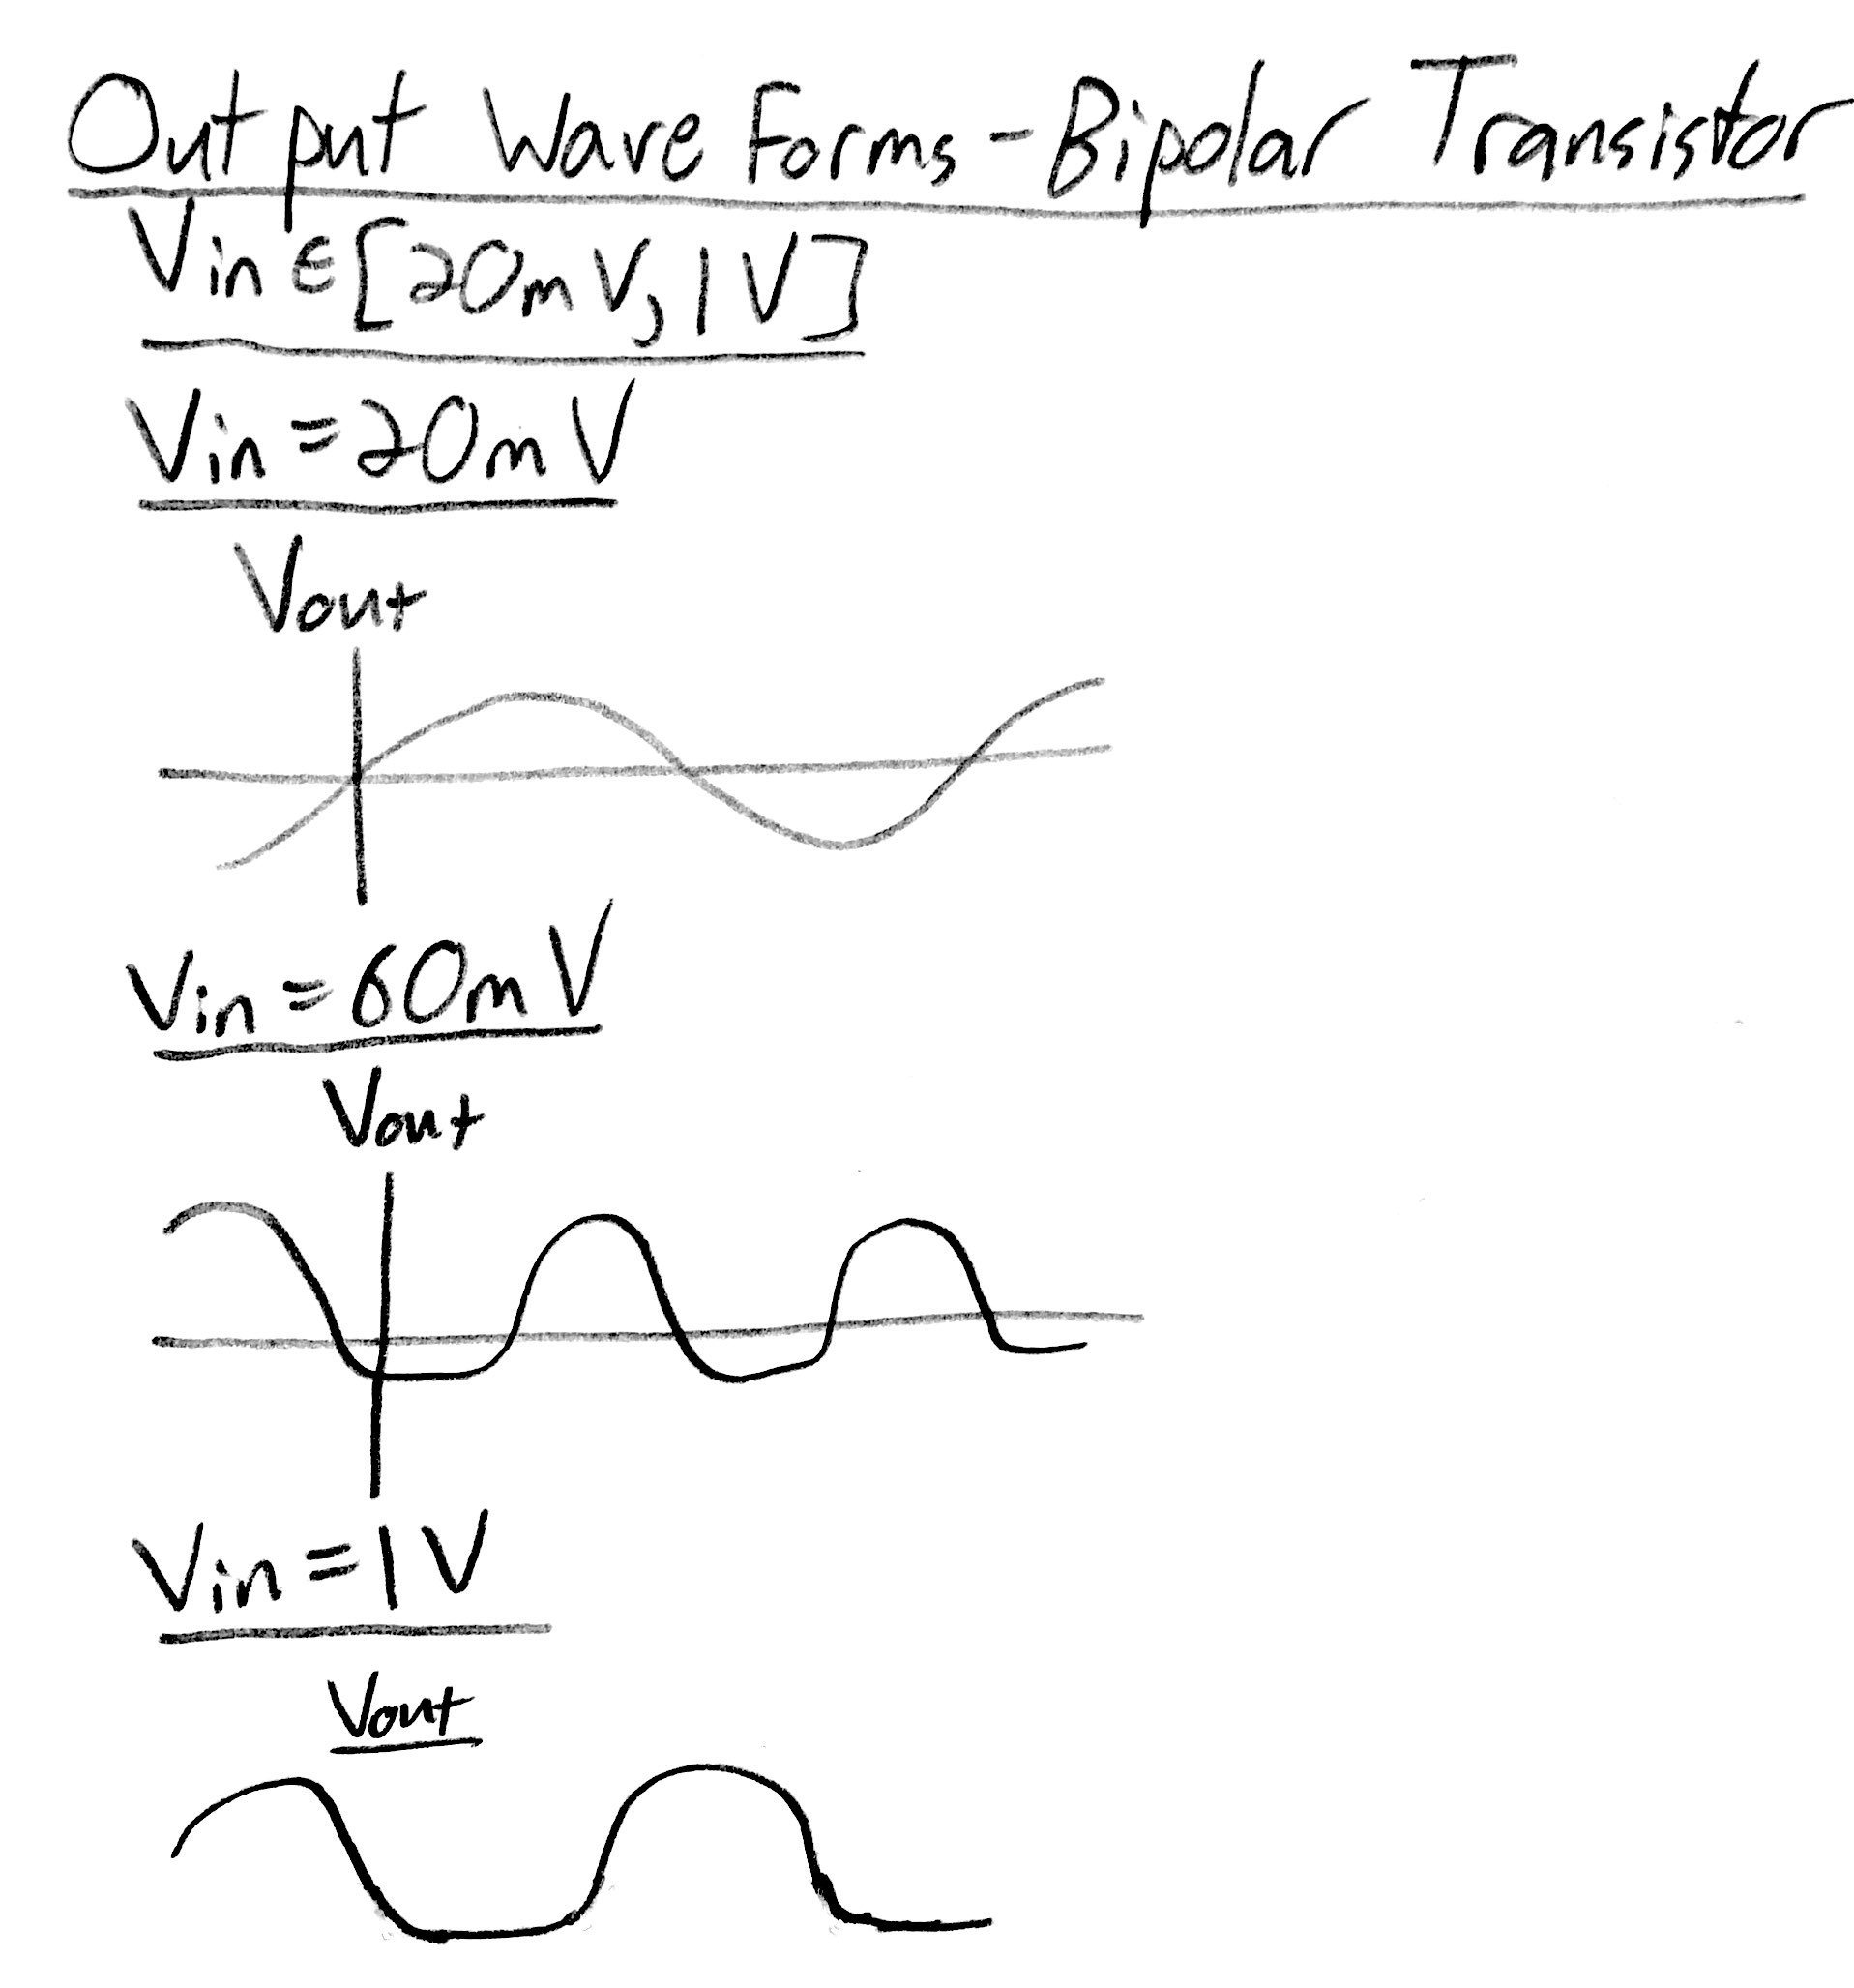 Output Wave Forms - Bipolar Transistor
Vin ∈ [20mV, 1V]
Vin = 20mV
Vout
Vin = 60mV
Vout
Vin = 1V
Vout